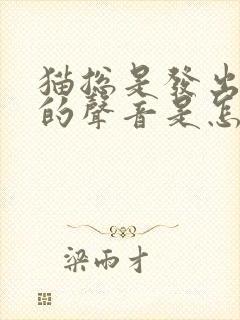 猫總是發出
的聲音是怎
梁雨才